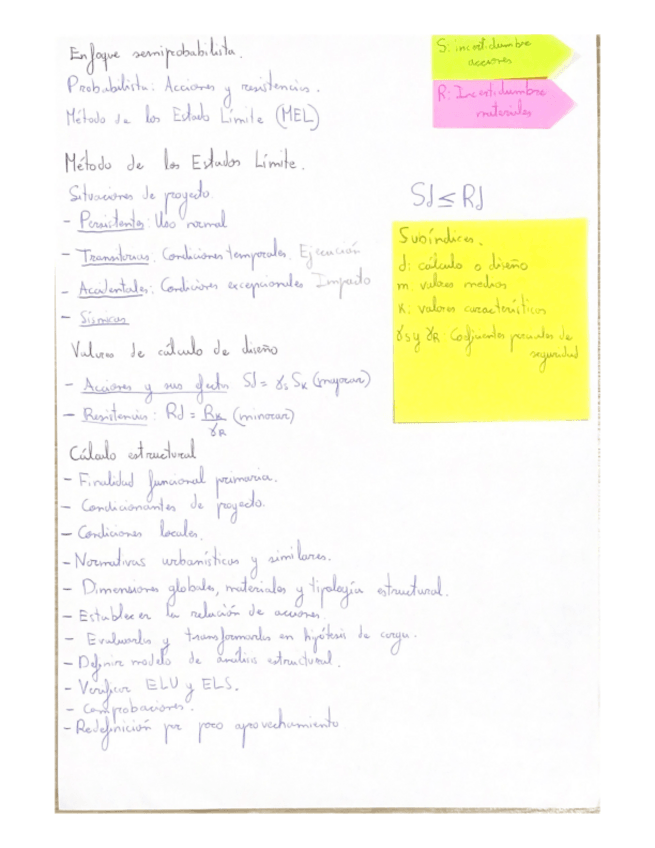 Enfoque semiprobabilista.
Probabilista: Acciones y resistencias.
Método de los Estado Límite (MEL)
S: incertidumbre
acciones
R: Incertidumbre
materiales
Método de los Estados Límite.
Situaciones de proyecto
- Persistentes: Uso normal
- Transitorias: Condiciones temporales. Ejecución
- Accidentales: Condiciones excepcionales Impacto
- Sísmicas
Sd ≤ Rd
Subíndices.
d: cálculo o diseño
m. valores medios
K. valores característicos
γs y γR: Coeficientes parciales de
seguridad
Valores de cálculo de diseño
- Acciones y sus efectos Sd = γs SK (mayorar)
- Resistencias: Rd = RK/γR (minorar)
Cálculo estructural
- Finalidad funcional primaria.
- Condicionantes de proyecto.
- Condiciones locales.
- Normativas urbanísticas y similares.
- Dimensiones globales, materiales y tipología estructural.
- Establecer la relación de acciones.
- Evaluarlas y transformarlas en hipótesis de carga.
- Definir modelo de análisis estructural.
- Verificar ELU y ELS.
- Comprobaciones.
- Redefinición por poco aprovechamiento